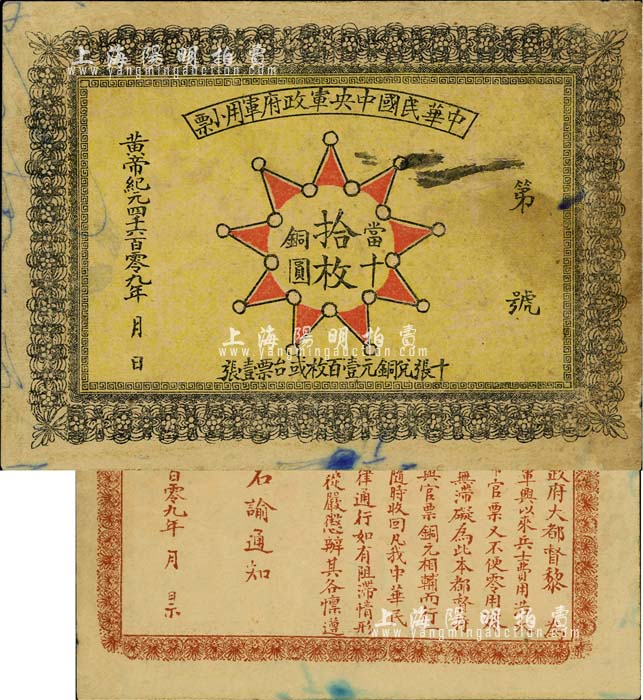 上海陽明拍賣
www.yangmingauction.com
中華民國中央軍政府軍用小票
第 號
當十
拾枚
銅圓
黄帝紀元四千六百零九年 月 日
十張兌銅元壹百枚或台票壹張
上海陽明拍賣
www.yangmingauction.com
政府大都督黎 為
軍興以來兵士費用
官票又不便零用
無滯礙為此本都督府
與官票銅元相輔而
隨時收回凡我中華民
律通行如有阻滯情形
從嚴懲辦其各懍遵
右諭通知
百零九年 月 日示
上海陽明拍賣
www.yangmingauction.com